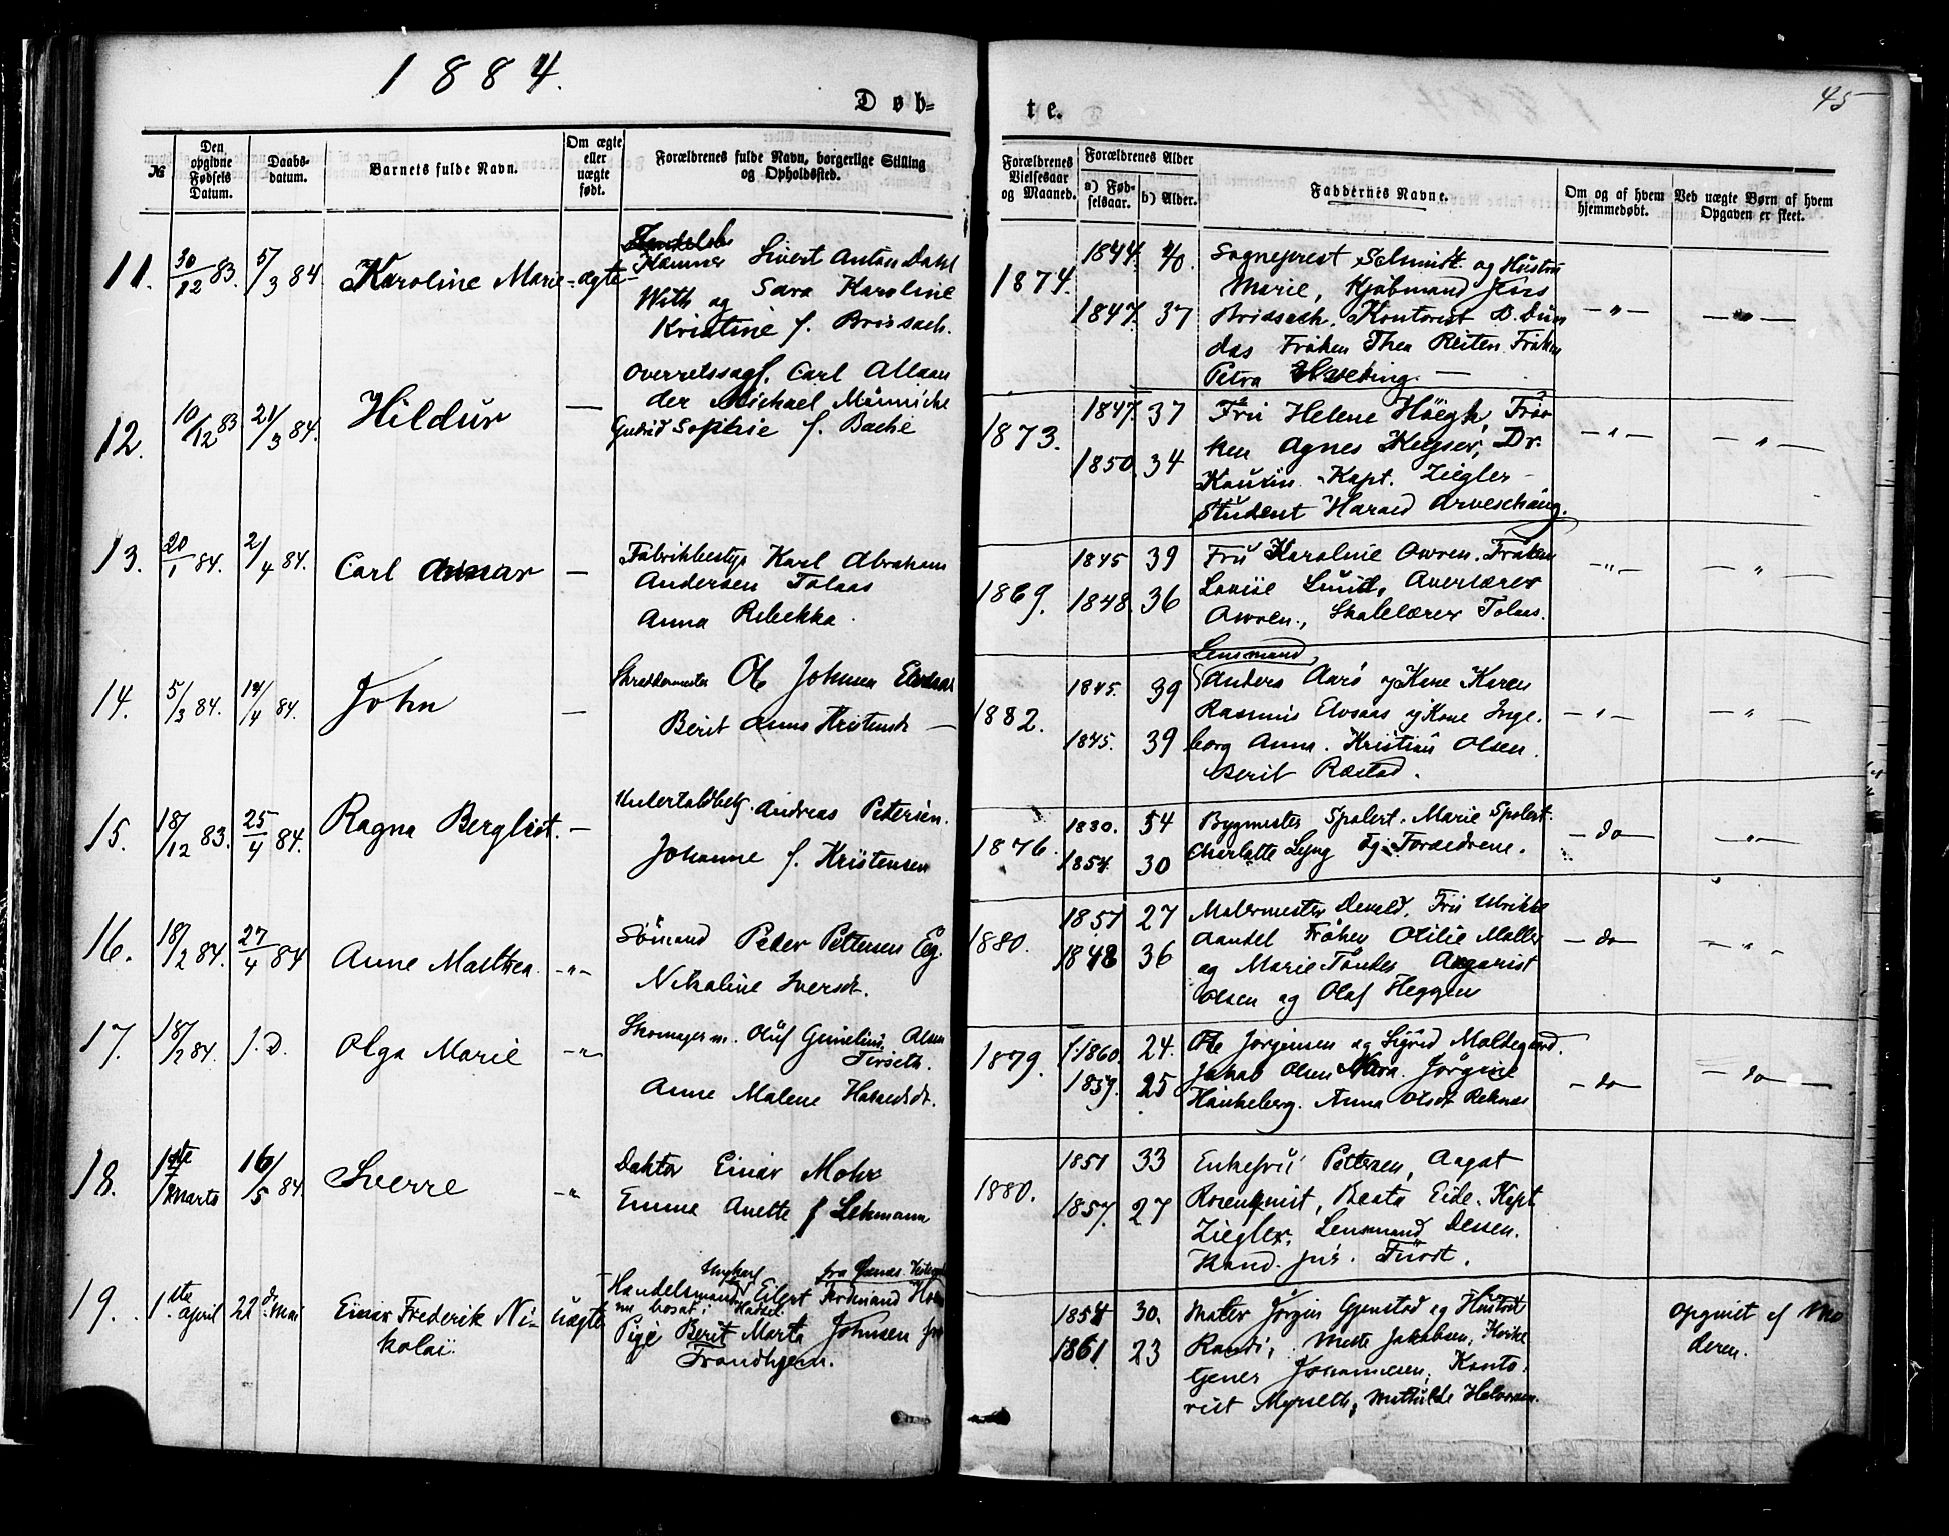 1884.
Døb=
te.
45
№
Den opgivne Fødsels Datum.
Daabs-datum.
Barnets fulde Navn.
Om ægte eller uægte født.
Forældrenes fulde Navn, borgerlige Stilling og Opholdssted.
Forældrenes Vielsesaar og Maaned.
Forældrenes Alder
a) Fød-selsaar.
b) Alder.
Faddernes Navne.
Om og af hvem hjemmedøbt.
Ved uægte Børn af hvem Opgaven er skeet.
11. 30/12 83. 5/3 84 Karoline Marie ægte
Sivert Anton Dahl
With og Sara Karoline
Kristine f. Brissach.
1874. 1844. 40. Sogneprest Schmidt og Hustru
Marie, Kjøbmand Jens
1847. 37 Brissach, Kontorist D. Dun
das Frøken Thea Reiten Frøken
Petra
12. 10/12 83 21/3 84. Hildur —
Overretssagf. Carl Alexan
der Michael Münniche
Gudrid Sophie f. Bache
1873. 1847. 37 Fru Helene Høegh, Frø
ken Agnes Keyser, Dr.
1850. 34 Kaurin. Kapt. Ziegler
Student Harald Arveschoug.
13. 20/1 84. 2/4 84. Carl —
Fabrikbestyr Karl Abraham
Andersen Tolaas
Anna Rebekka.
1869. 1845 39 Fru Karoline Owren. Frøken
1848. 36 Lovise Lund, Overlærer
Owren., Skolelærer Tolaas.
14. 5/3 84. 14/4 84. John —
Skreddermester Ole Johnsen Elvsaas
Berit Anna Kristensdr —
1882. 1845. 39 Lensmand,
Anders Aarø og Kone Karen
Rasmus Elvsaas og Kone Inge-
1845. 39 borg Anna. Kristian Olsen
Berit Røstad.
15. 18/12 83. 25/4 84. Ragna Bergliot. —
Undertoldbetj. Andreas Petersen.
Johanne f. Kristensen
1876. 1830. 54 Bygmester Spolert. Marie Spolert.
1854 30 Charlotte Lyng og Forældrene.
— do — — " —
16. 18/2 84. 27/4 84 Anne Mathea. -"-
Sømand Peder Pettersen Eg.
Nikoline Iversdr.
1880. 1857 27 Malermester Devold. Fru Ulrikke
1848 36 Aandel Frøken Otilie Møller
og Marie Tønder
Olsen og Olaf Heggen
— do — — " —
17. 18/2 84. s. D. Olga Marie -"-
Skomager m. Oluf Gunelius Olsen
Tirseth.
Anne Malene Haraldsdr.
1879. 1860. 24. Ole Jørgensen og Sigrid Moldegaard.
1859. 25 Jakob Olsen Jørgine
Haukeberg. Anna Olsdr Reknæs
— do — — do —
18. 1ste Marts 16/5 84. Sverre -"-
Doktor Einar Mohr
Emma Anette f Lehmann
1880. 1851 33 Enkefru Pettersen, August
1857. 27 Rosenqvist, Beata Eide. Kapt
Ziegler. Lensmand Dessen.
Kand. jur.
19. 1ste april 22d Mai Einar Frederik Ni-
kolai. uægte
Ungkarl fra
Handelsmand Eilert Ferdinand
bosat i Hadsel
Pige Berit Marta Johnsen fra
Trondhjem.
1854 30. Maler Jørgen Gjenstad og Hustru
1861. 23 Randi, Mette Jakobsen,
Johannesen, Konto-
rist Myrseth, Mathilde Halvorsen.
opgivet af Mo
deren.